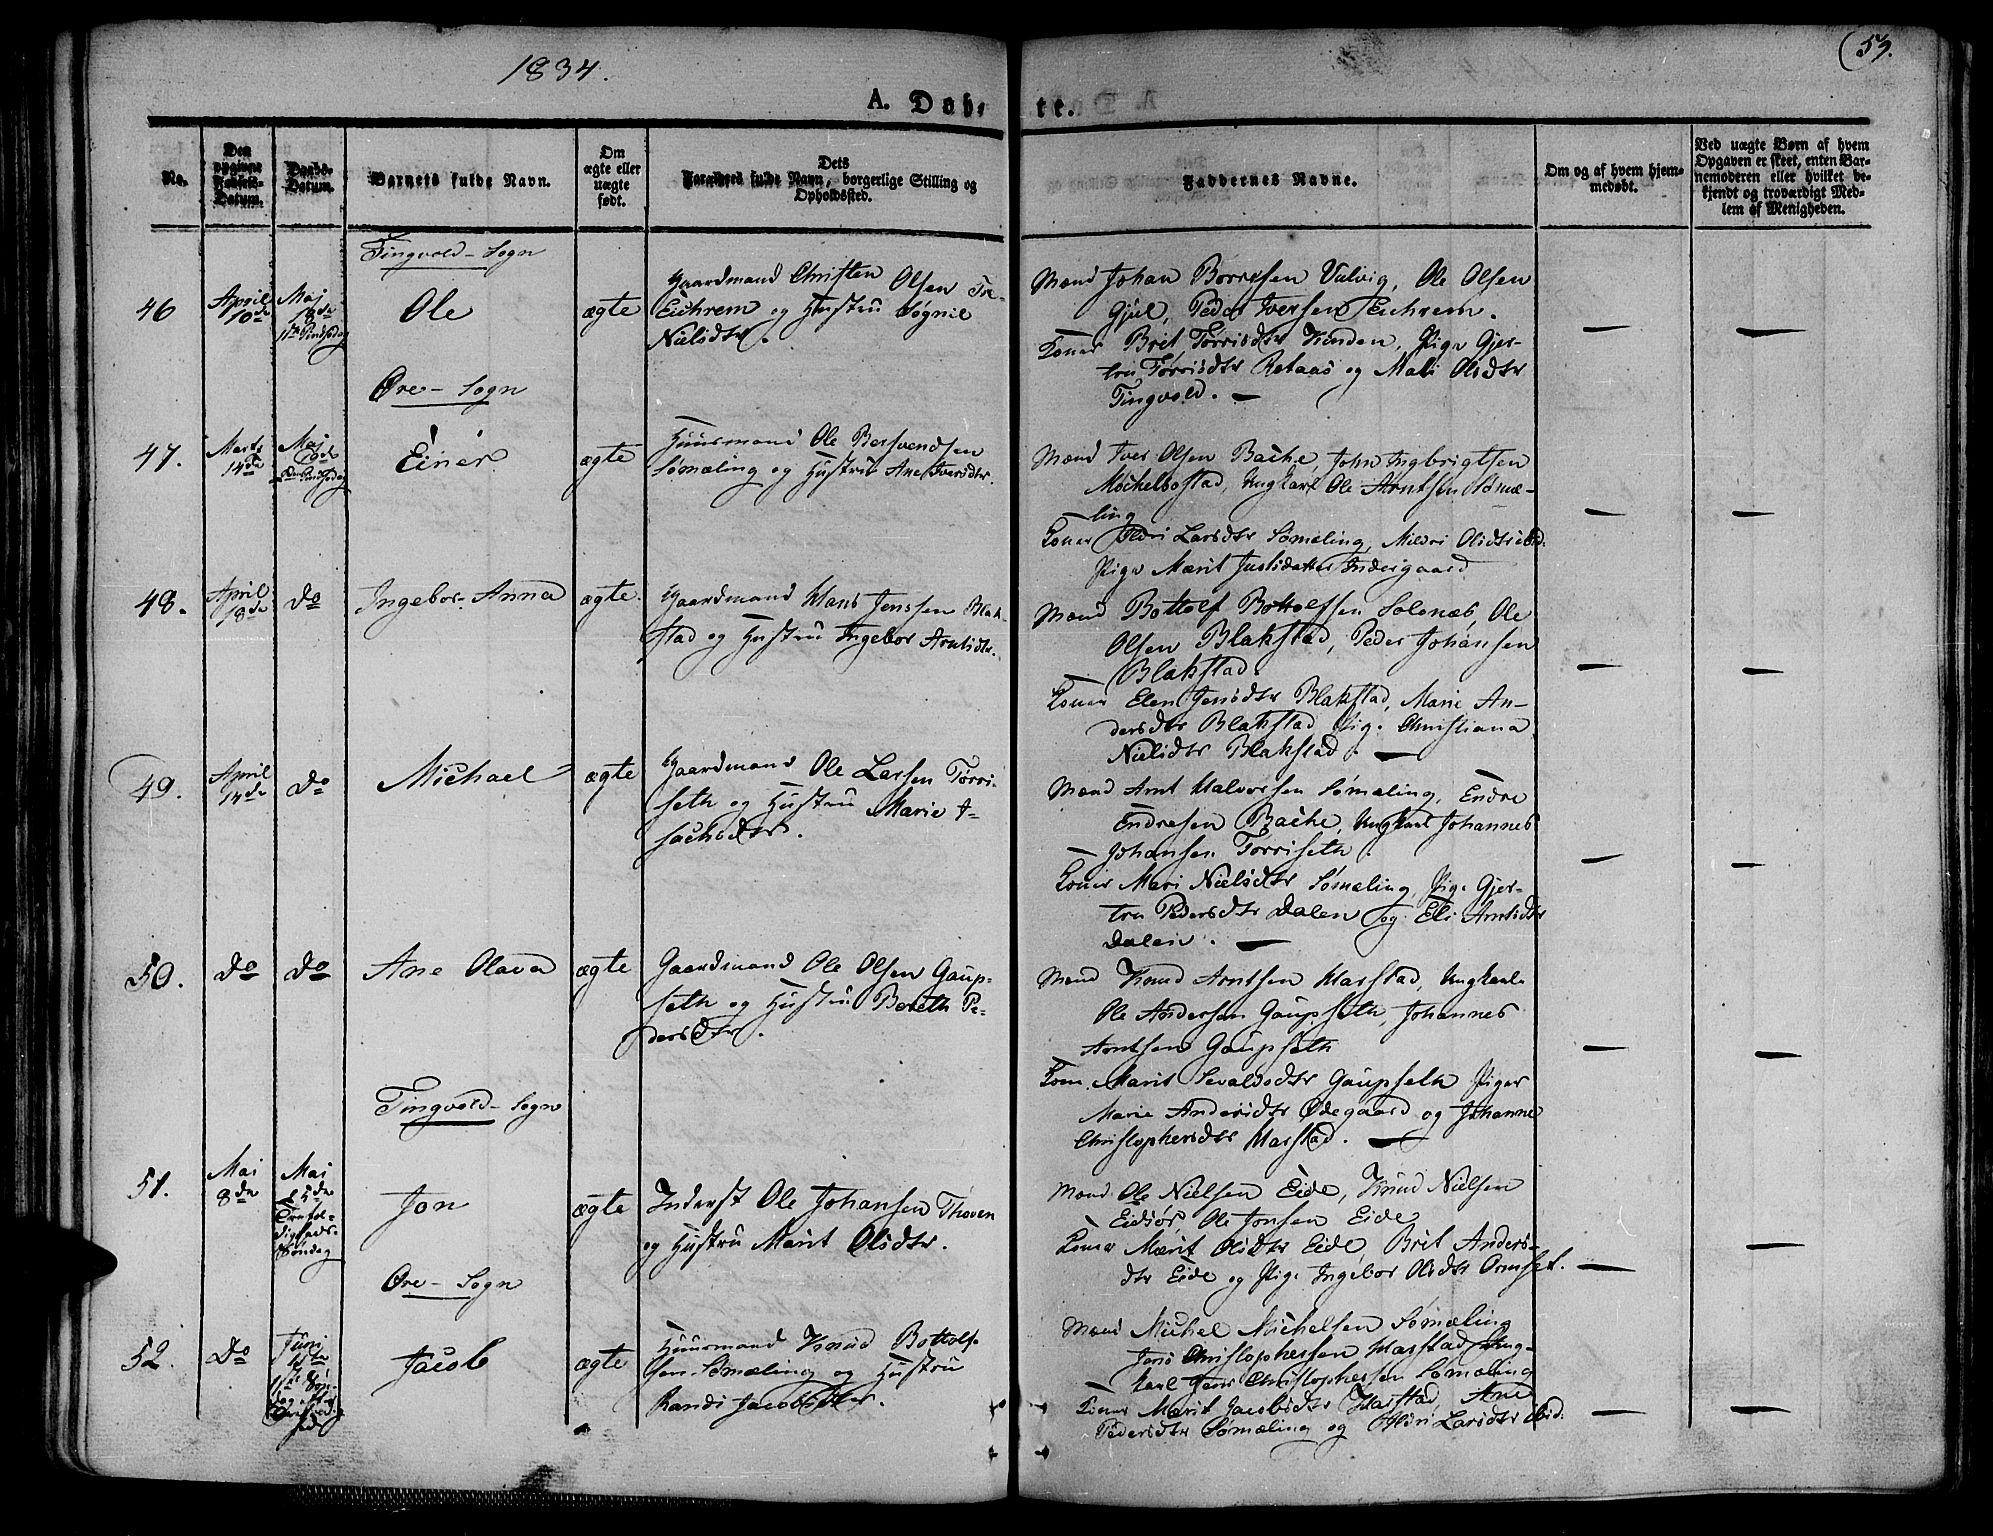 1834.
59.
A. Døbte.
No.
Den opgivne Fødsels-Datum.
Daabs-Datum.
Barnets fulde Navn.
Om ægte eller uægte født.
Dets Forældres fulde Navn, borgerlige Stilling og Opholdssted.
Faddernes Navne.
Om og af hvem hjemmedøbt.
Ved uægte Børn af hvem Opgaven er skeet, enten Barnemoderen eller hvilket bekjendt og troværdigt Medlem af Menigheden.
Tingvold-Sogn
46
April 10de
Maj 18de
1ste Pindsedag
Ole
ægte
Gaardmand Christen Olsen
Eichrem og Hustru Søgnil
Nielsdtr.
Mænd Johan Børresen Vulvig, Ole Olsen
Gjul, Peder Iversen Eichrem.
Koner Brit Tørrisdtr Kunden, Pige Gjer-
tru Tørrisdtr Rotaas og Mali Olsdtr
Tingvold. —
Øre-Sogn
47.
Marts 14de
Maj
Einer
ægte
Huusmand Ole Bersvendsen
Sømæling og Hustru Ane Iversdtr.
Mænd Iver Olsen Bache, John Ingbrigtsen
Mechelbostad, Ungkarl Ole Arntsen Sømæ-
ling
Koner Eldri Larsdtr Sømæling, Mildri Olsdtr ibid.
Pige Marit Justsdatter Indergaard
48.
April 18de
Do
Ingebor Anna
ægte.
Gaardmand Hans Jenssen Blak-
stad og Hustru Ingebor Arntsdtr.
Mænd Bottolf Bottolfsen Solenæs, Ole
Olsen Blakstad, Peder Johansen
Blakstad
Koner Elen Jensdtr Blakstad, Marie An-
dersdtr Blakstad Pige Christiana
Nielsdtr Blakstad. —
49.
April 14de
Do
Michael
ægte
Gaardmand Ole Larsen Torri-
seth og Hustru Marie I-
sachsdtr.
Mænd Arnt Halvorsen Sømæling, Endre
Endresen Bache, Ungkarl Johannes
Johansen Torriseth.
Koner Mari Nielsdtr Sømæling, Pige Gjer-
tru Pedersdtr Dalen og Eli Arntsdtr
Dalen. —
50.
Do
Do
Ane Olava
ægte
Gaardmand Ole Olsen Gaup-
seth og Hustru Bereth Pe-
dersdtr.
Mænd Knud Arntsen Harstad, Ungkarle
Ole Andersen Gaupseth, Johannes
Arntsen Gaupseth
Kone Marit Sevaldsdtr Gaupseth Piger
Marie Andersdtr Ødegaard og Johanne
Christophersdtr Harstad. —
Tingvold-Sogn
51.
Maj 8de
Maj 25de
Trefol-
digheds-
Søndag
Jon
ægte
Inderst Ole Johansen Thoven
og Hustru Marit Olsdtr.
Mænd Ole Nielsen Eide, Knud Nielsen
Eidsør Ole Jonsen Eide
Koner Marit Olsdtr Eide, Brit Anders-
dtr Eide og Pige Ingebor Olsdtr Ormset.
Øre-Sogn
52.
Do
Juni
Jacob
ægte
Huusmand Knud Bottolf-
sen Sømæling og Hustru
Randi Jacobsdtr.
Mænd Michel Michelsen Sømæling
Jens Christophersen Harstad, Ung-
karl Jens Christophersen Sømæling
Koner Marit Jacobsdtr Harstad, Ane
Pedersdtr Sømæling og Eldri Larsdtr ibid.